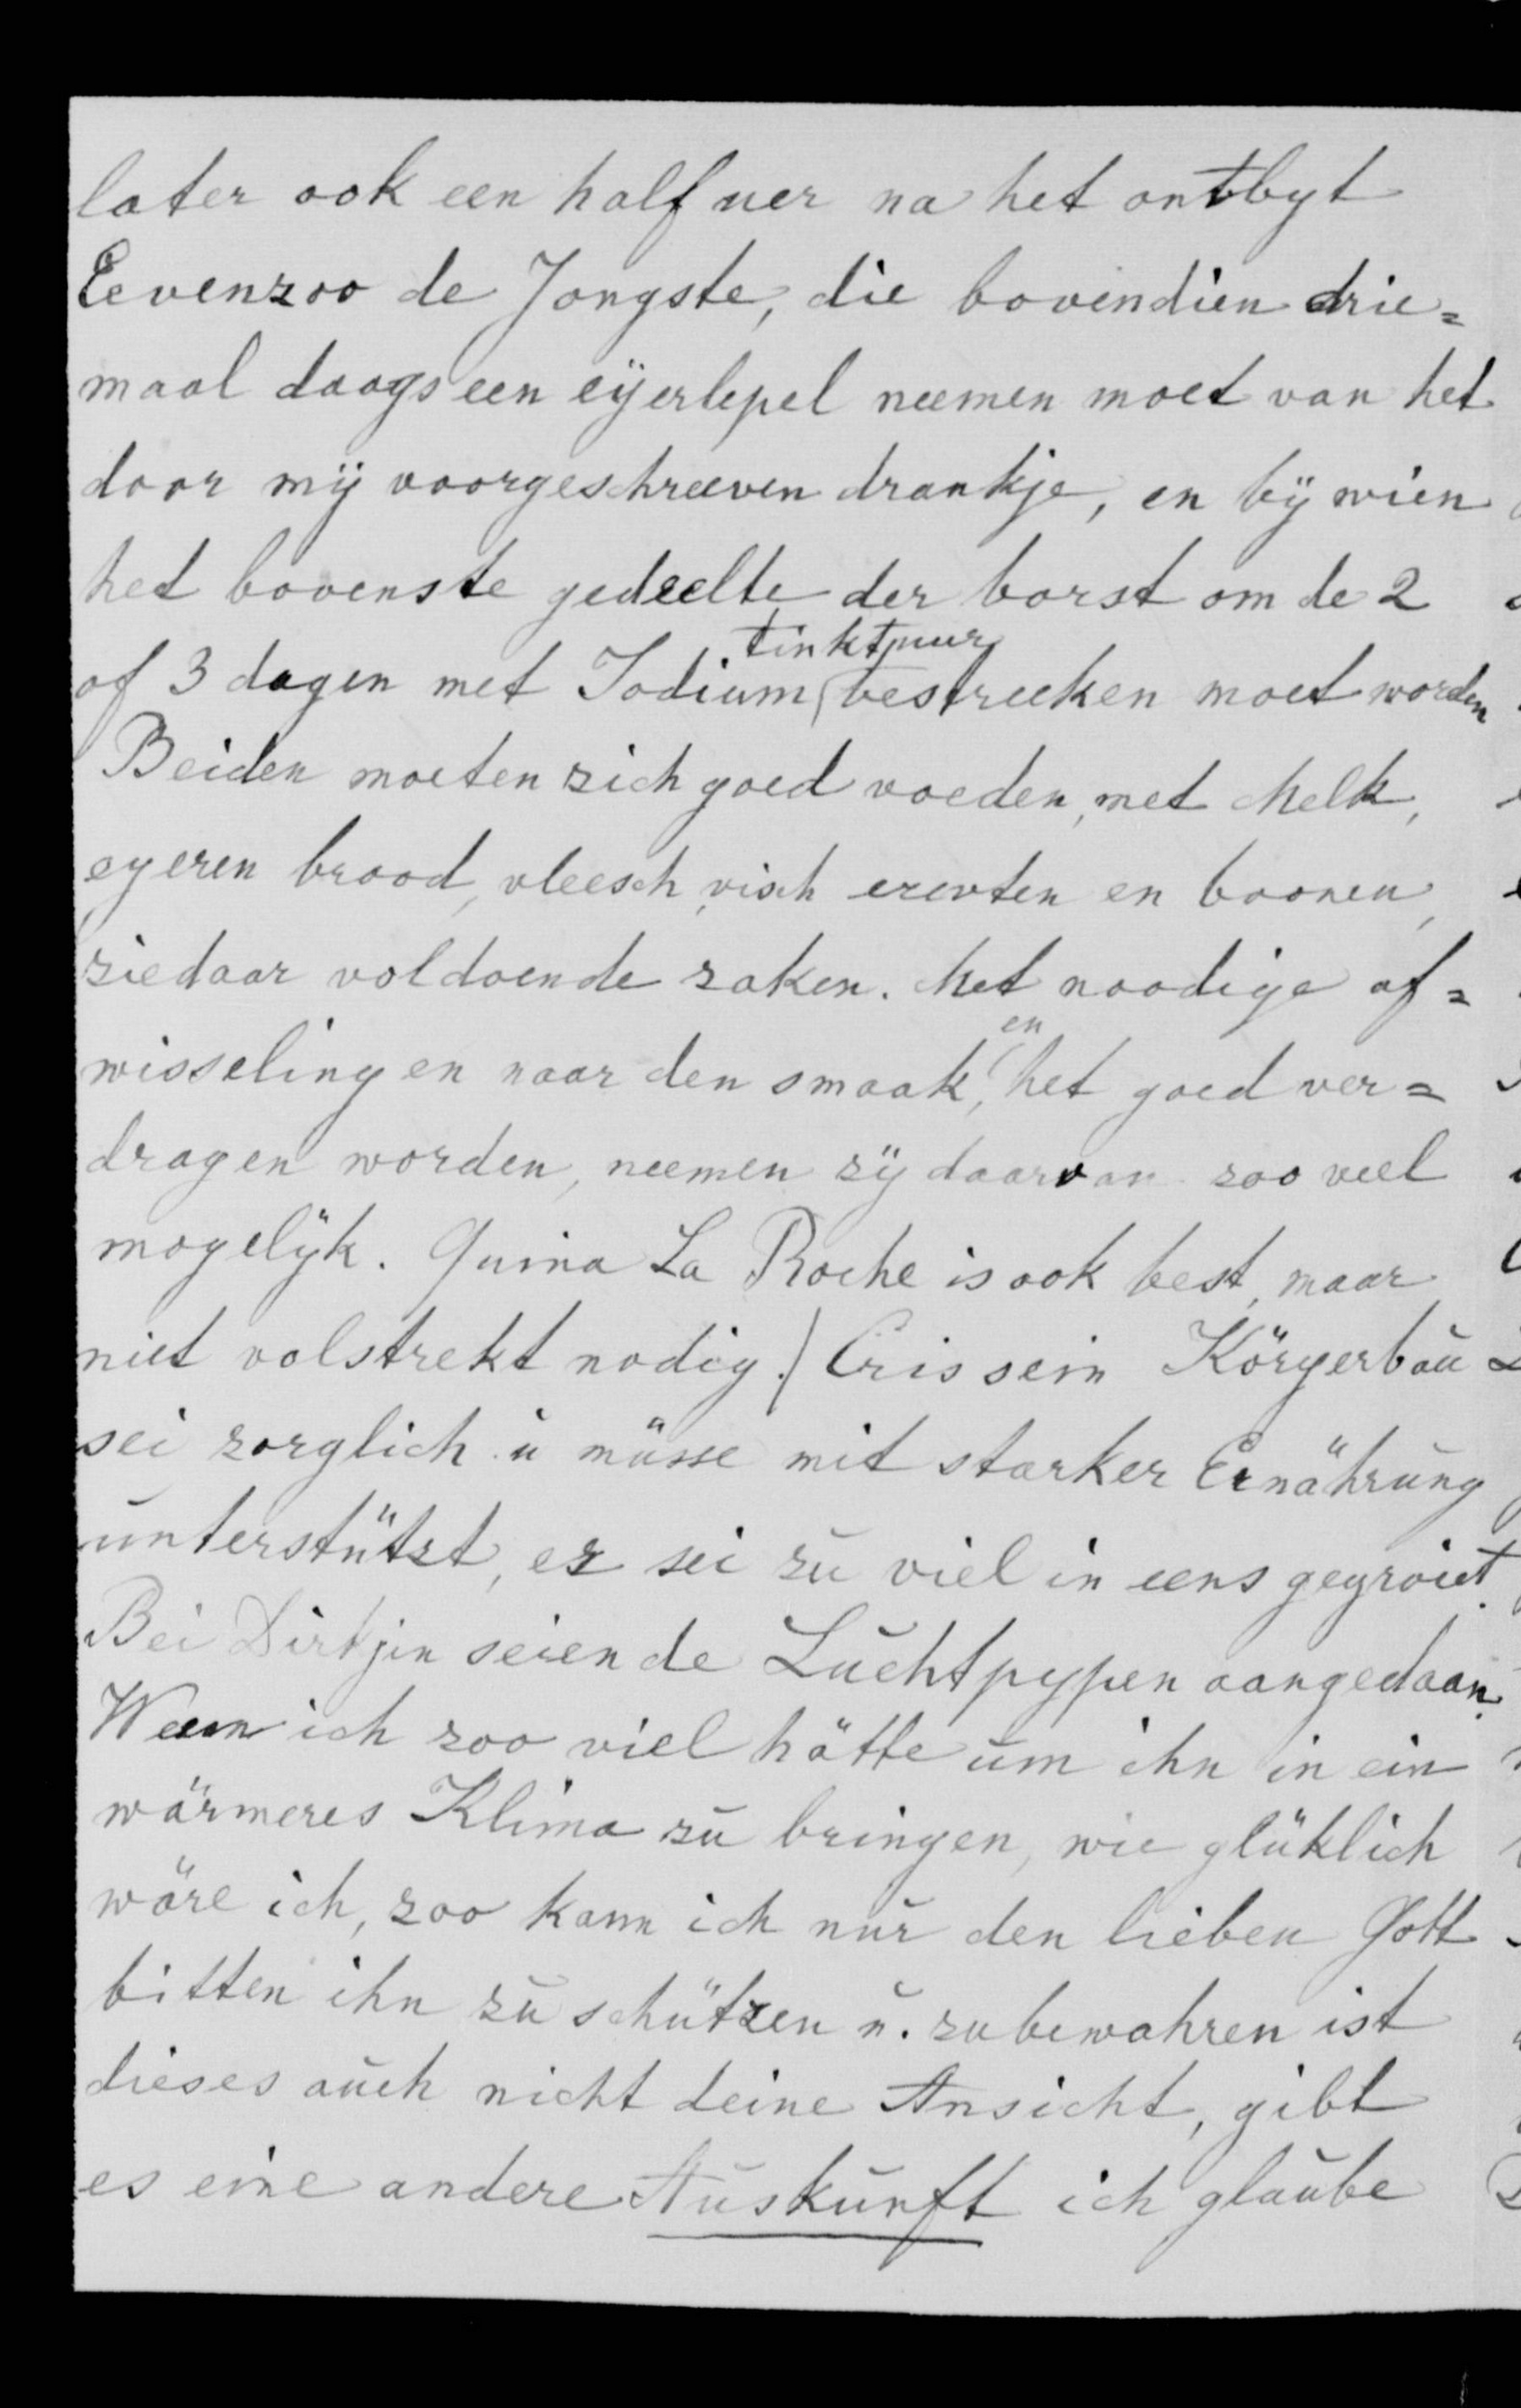 later ook een half uer na het ontbyt
Eevenzoo de Jongste, die bovendien drie=
maal daags een eÿerlepel neemen moet van het
door mÿ voorgeschreeven drankje, en bÿ wien
het bovenste gedeelte der borst om de 2
of 3 dagen met Jodium tinktuur bestreeken moet worden
Beiden moeten zich goed voeden, met Melk,
eyeren brood, vleesch, visch erevten en boonen,
ziedaar voldoende zaken. Met noodige af=
wisselingen naar den smaak, en het goed ver=
dragen worden, neemen zÿ daarvan zoo veel
mogelÿk. Quina La Roche is ook best, maar
niet volstrekt nodig. / Cris sein Körperbaŭ
sei zorglich ŭ müsse mit starker Ernährŭng
ŭnterstützt, er sei zŭ viel in eens gegroiet.
Bei Dirtjen seien de Lŭchtpypen aangedaan.
Wenn ich zoo viel hätte ŭm ihn in ein
wärmeres Klima zŭ bringen, wie glüklich
wäre ich, zoo kann ich nŭr den lieben Gott
bitten ihn zŭ schützen ŭ. zu bewahren ist
dieses aŭch nicht deine Ansicht, gibt
es eine andere Aŭskŭnft ich glaŭbe